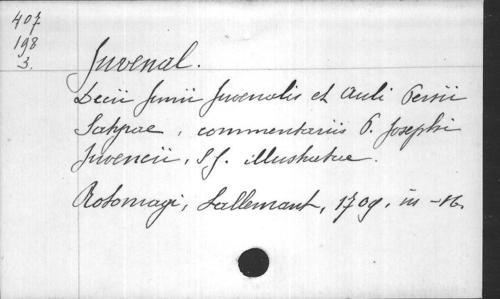 407
198
3.
Juvenal.
Decii Junii Juvenalis et Auli Persii
Satyrae, commentariis P. Josephi
Juvencii, S J. illustratae.
Rotomagi, Lallemant, 1709, in-16.